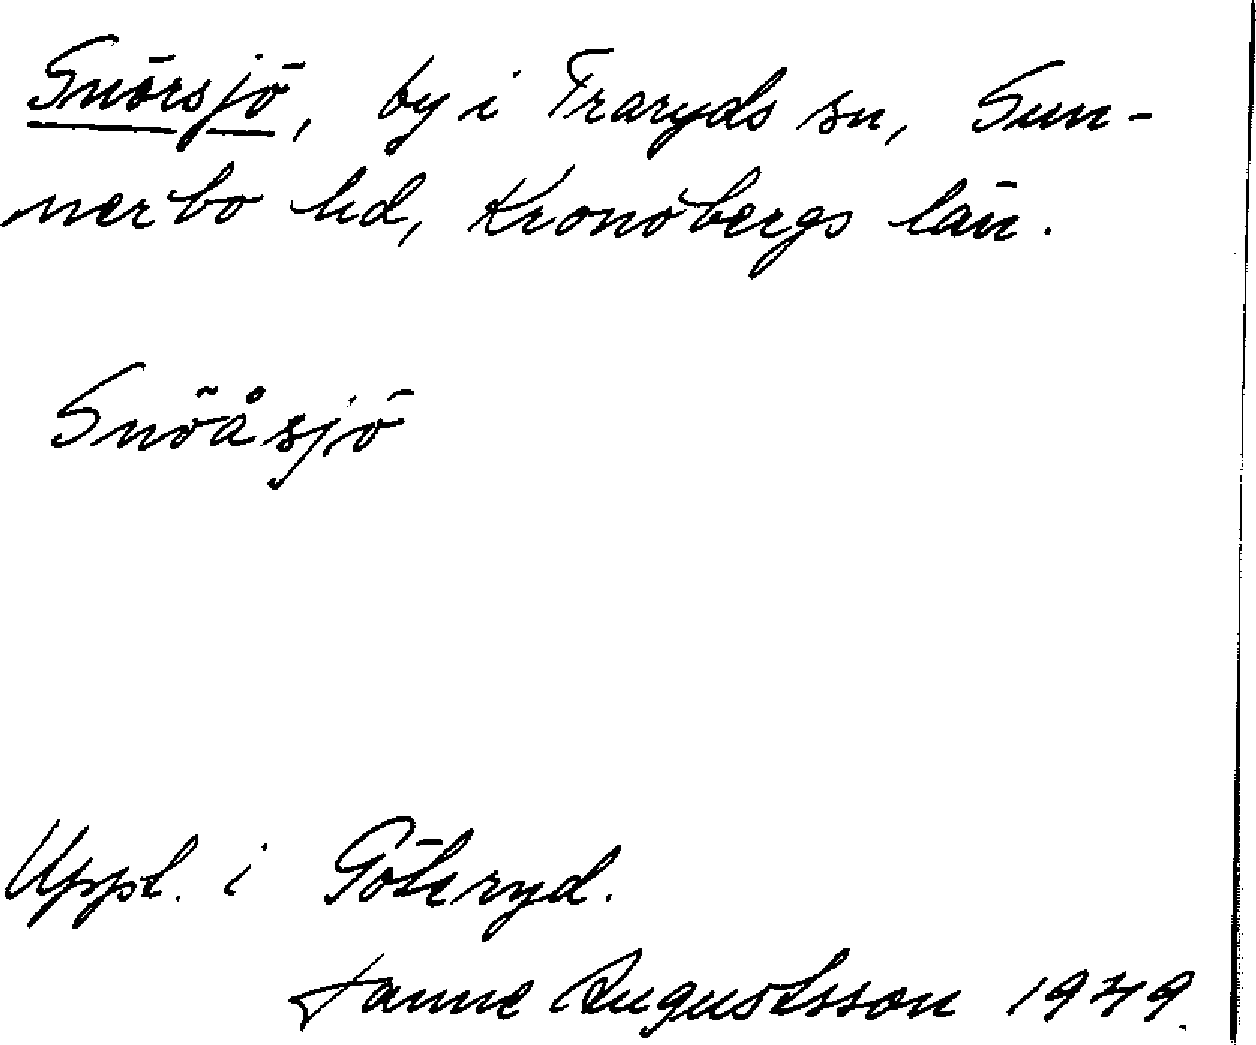 Snörsjö, by i Traryds sn, Sun-
nerbo hd, Kronobergs län.
Snöåsjö
Uppt. i Göteryd.
Janne Augustsson 1949.